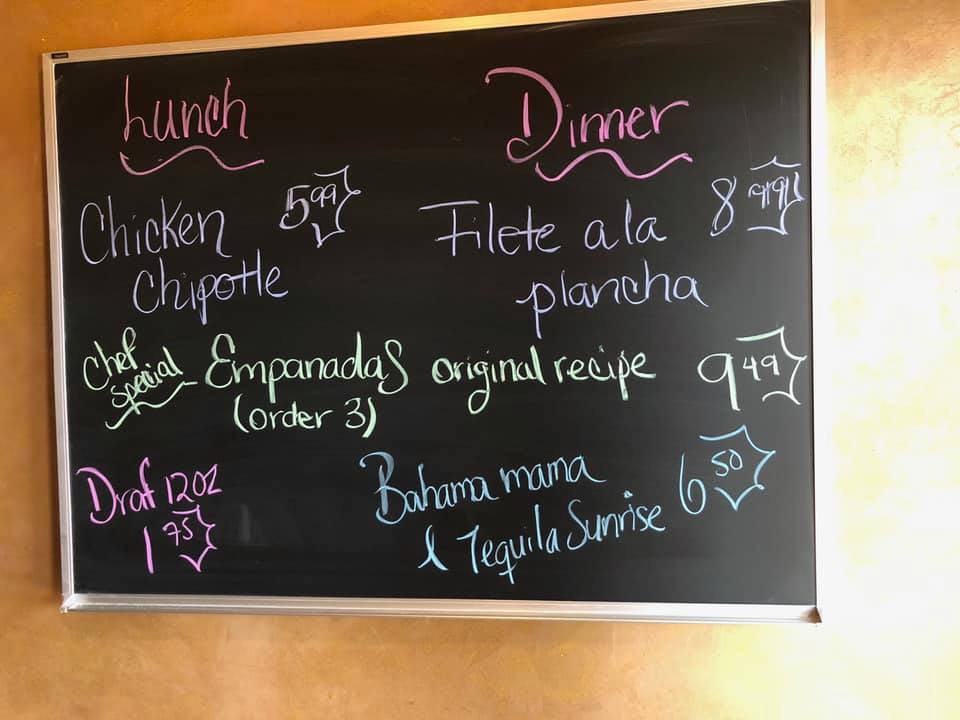 Lunch
Chicken 5 99
Chipotle
Dinner
Filete a la 8 99
plancha
Chef
special
Empanadas original recipe 9 49
(order 3)
Draf 12oz
1 75
Bahama mama 6 50
& Tequila Sunrise